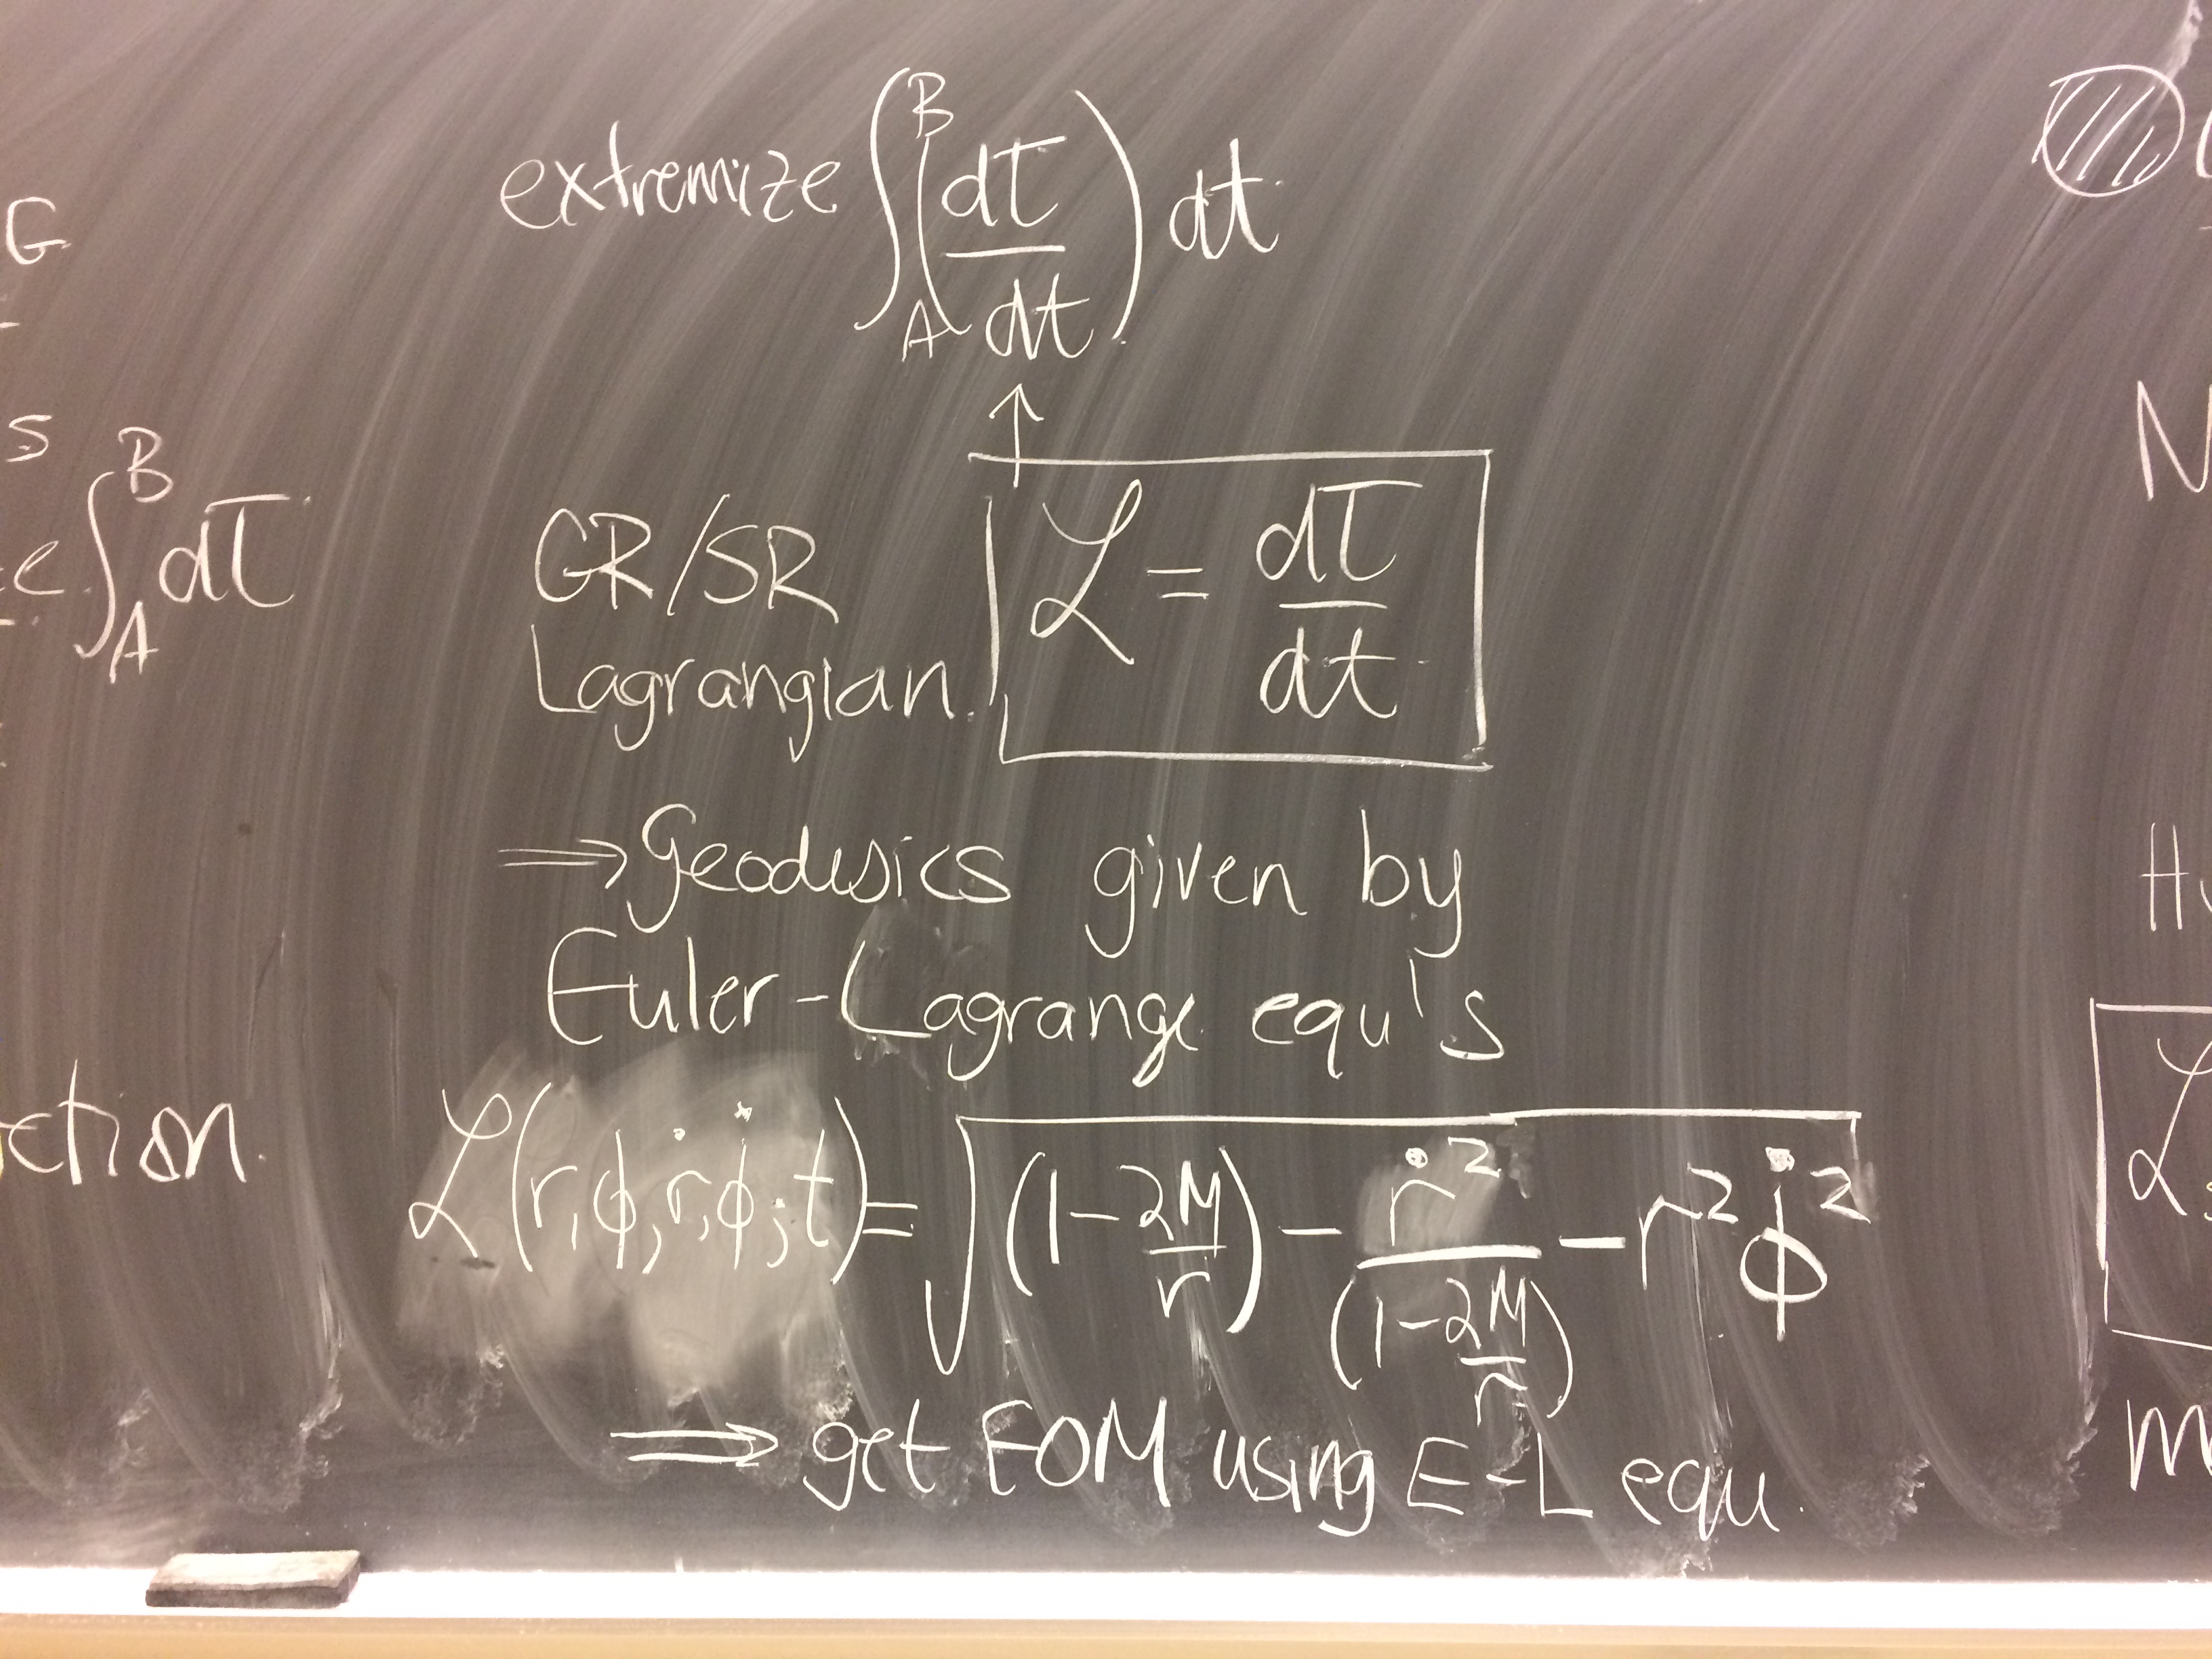 G
s
∫_A^B dτ
ction.
extremize ∫_A^B (dτ/dt) dt
↑
GR/SR
Lagrangian.
ℒ = dτ/dt
⇒ Geodesics given by
Euler-Lagrange equ's
ℒ(r,ϕ,ṙ,ϕ̇;t) = √((1-2M/r) - ṙ²/(1-2M/r) - r²ϕ̇²)
⇒ get EOM using E-L equ.
N
H
ℒ
m